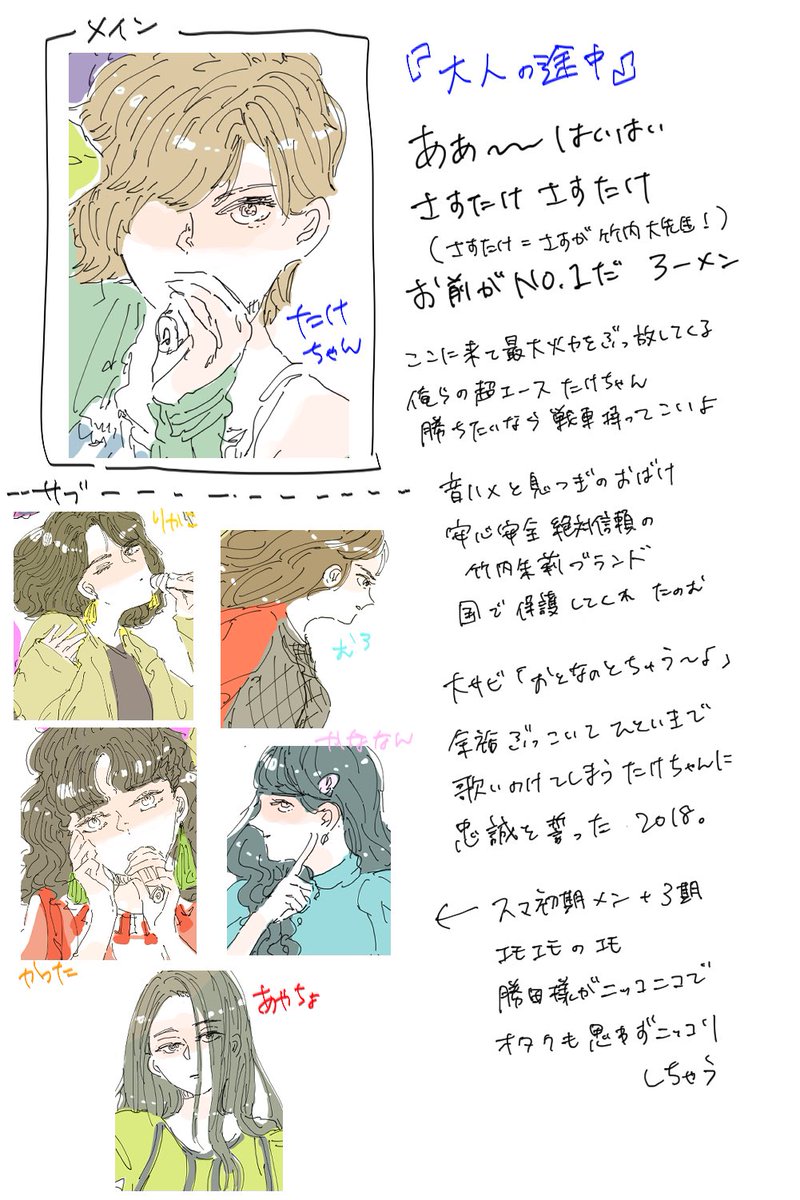 メイン
たけ
ちゃん
サブ
りかこ
むろ
かななん
かった
あやちょ
『大人の途中』
ああ〜〜はいはい
さすたけ さすたけ
(さすたけ=さすが竹内大先生!)
お前がNo.1だ ラーメン
ここに来て最大火力をぶっ放してくる
俺らの超エース たけちゃん
勝ちたいなら 戦車持ってこいよ
音ハメと息つぎのおばけ
安心安全 絶対信頼の
竹内朱莉ブランド
国で保護してくれ たのむ
大サビ「おとなのとちゅう〜よ」
余裕ぶっこいて ひといきで
歌いのけてしまう たけちゃんに
忠誠を誓った 2018。
← スマ初期メン+3期
エモエモのエモ
勝田様がニッコニコで
オタクも思わずニッコリ
しちゃう